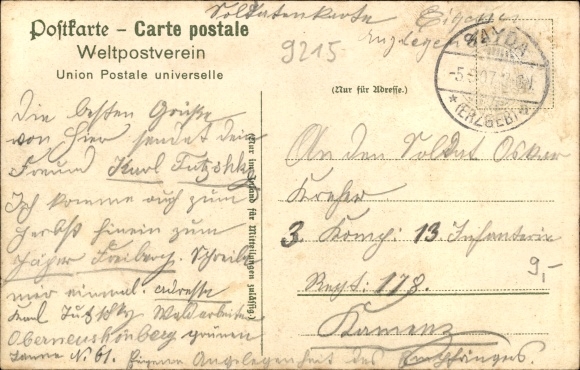 Soldatenkarte Eigene
Postkarte – Carte postale
Weltpostverein
Union Postale universelle
9215
SAYDA
-5. 07
* (ERZGEB.) *
(Nur für Adresse.)
(Nur im Inland für Mitteilungen zulässig.)
Die besten Grüße
von hier sendet dein
Freund Karl Tutzschky
Ich komme auch zum
Herbst hinein zum
Jäger Freiberg. Schreibe
mir einmal. adresse
Karl Tutzschky Waldarbeiter
Oberneuschönberg grünen
Tanne No 61. Eigene Angelegenheit des Empfängers.
An den Soldat Oskar
3 Komp: 13 Infanterie
Regt: 178.
Kamenz
9,-